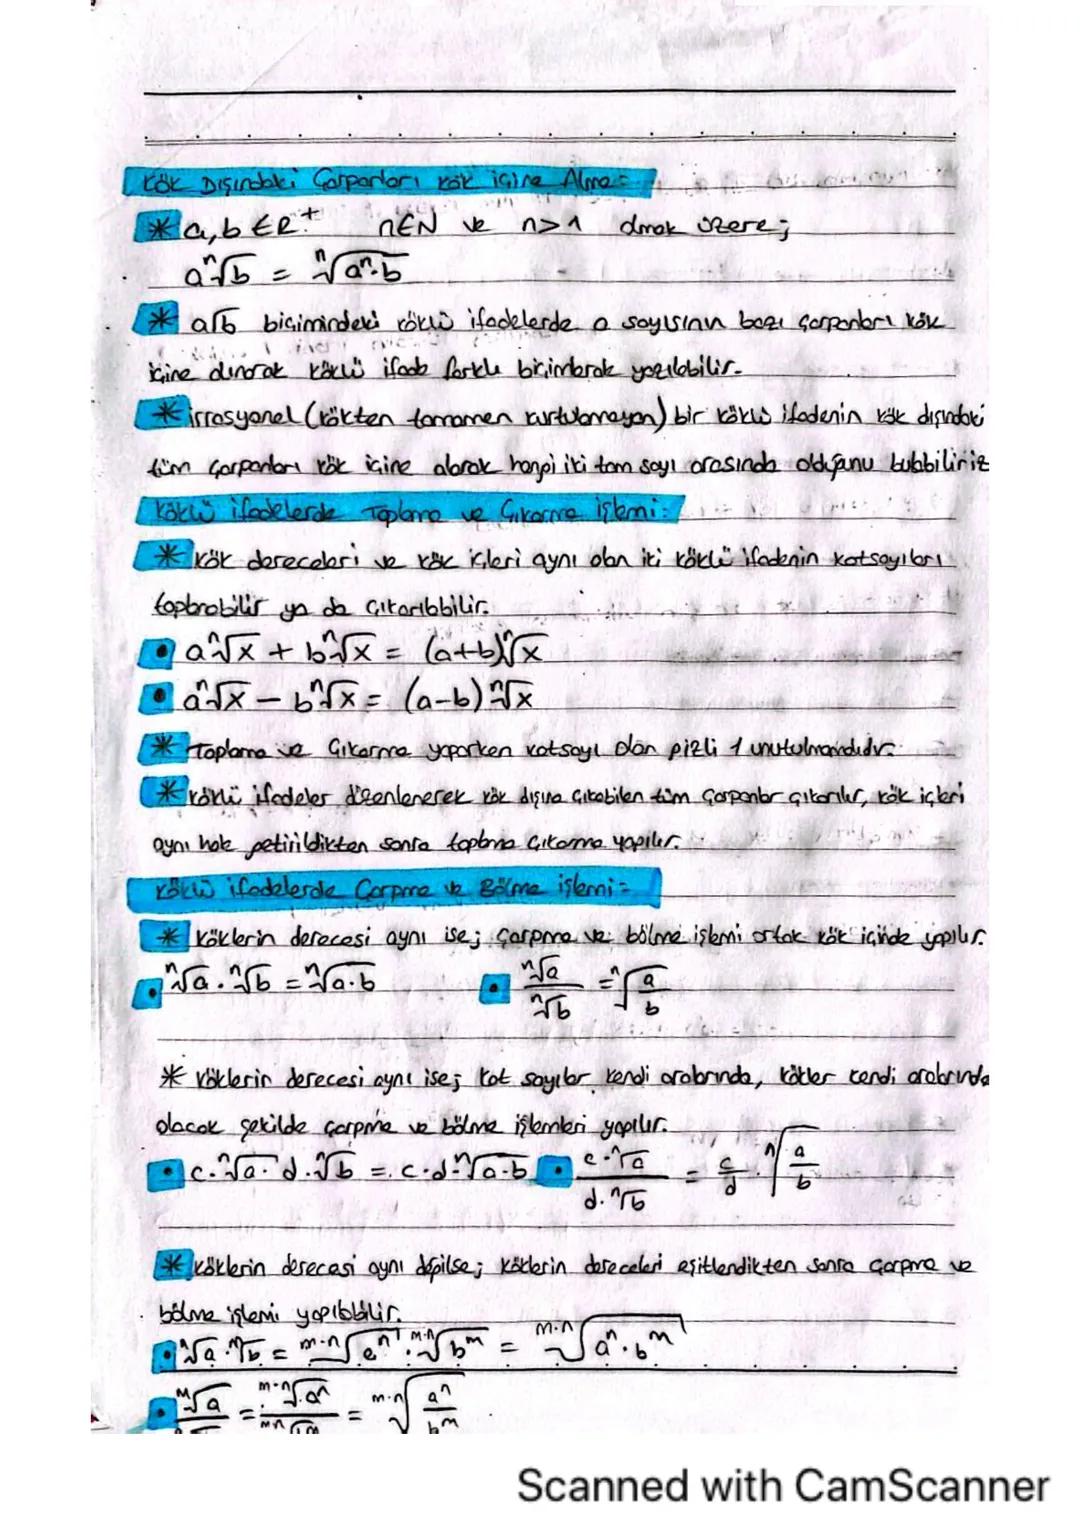 Kök Dışındaki Çarpanları Kök içine Alma=
* a,b ∈ R⁺ n∈N ve n>1 olmak üzere;
a ⁿ√b = ⁿ√aⁿ.b
* a√b biçimindeki köklü ifadelerde a sayısının bazı çarpanları kök
içine alınarak köklü ifade farklı biçimlerde yazılabilir.
* irrasyonel (kökten tamamen kurtulamayan) bir köklü ifadenin kök dışındaki
tüm çarpanları kök içine alarak hangi iki tam sayı arasında olduğunu bulabiliriz
Köklü ifadelerde Toplama ve Çıkarma işlemi:
* Kök dereceleri ve kök içleri aynı olan iki köklü ifadenin katsayıları
toplanabilir ya da çıkarılabilir.
• a ⁿ√x + b ⁿ√x = (a+b) ⁿ√x
• a ⁿ√x - b ⁿ√x = (a-b) ⁿ√x
* Toplama ve Çıkarma yaparken katsayı olan gizli 1 unutulmamalıdır.
* Köklü ifadeler düzenlenerek kök dışına çıkabilen tüm çarpanlar çıkarılır, kök içleri
aynı hale getirildikten sonra toplama çıkarma yapılır.
Köklü ifadelerde Çarpma ve Bölme işlemi=
* Köklerin derecesi aynı ise; çarpma ve bölme işlemi ortak kök içinde yapılır.
• ⁿ√a . ⁿ√b = ⁿ√a.b • ⁿ√a / ⁿ√b = ⁿ√(a/b)
* Köklerin derecesi aynı ise; kat sayılar kendi aralarında, kökler kendi aralarında
olacak şekilde çarpma ve bölme işlemleri yapılır.
• c. ⁿ√a . d. ⁿ√b = c.d. ⁿ√a.b • c. ⁿ√a / d. ⁿ√b = c/d . ⁿ√(a/b)
* Köklerin derecesi aynı değilse; köklerin dereceleri eşitlendikten sonra çarpma ve
bölme işlemi yapılabilir.
• ᵐ√a . ⁿ√b = ᵐ·ⁿ√aⁿ . ᵐ·ⁿ√bᵐ = ᵐ·ⁿ√aⁿ.bᵐ
• ᵐ√a = ᵐ·ⁿ√aⁿ = ᵐ·ⁿ√(aⁿ/bᵐ)
Scanned with CamScanner